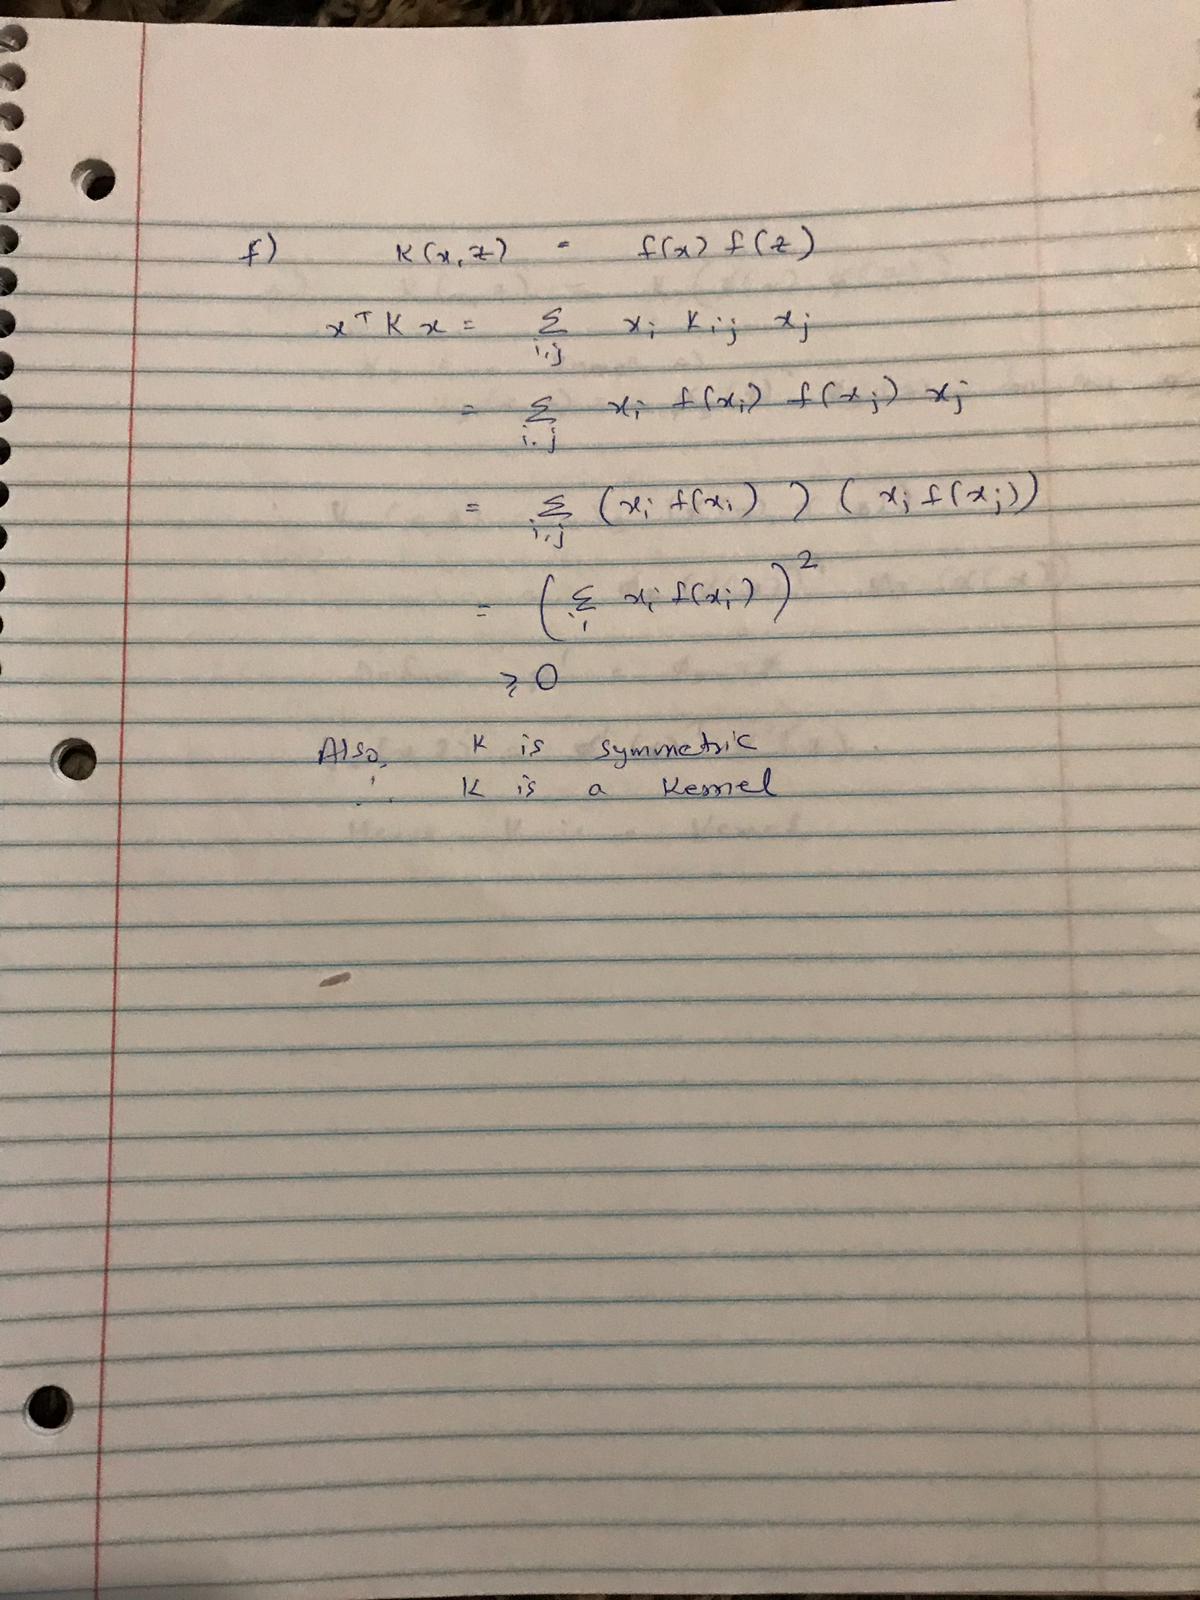 f) K(x,z) = f(x) f(z)
xᵀ K x = Σ_{i,j} x_i K_{ij} x_j
= Σ_{i,j} x_i f(x_i) f(x_j) x_j
= Σ_{i,j} (x_i f(x_i)) (x_j f(x_j))
= (Σ_i x_i f(x_i))²
≥ 0
Also, K is symmetric
∴ K is a Kernel